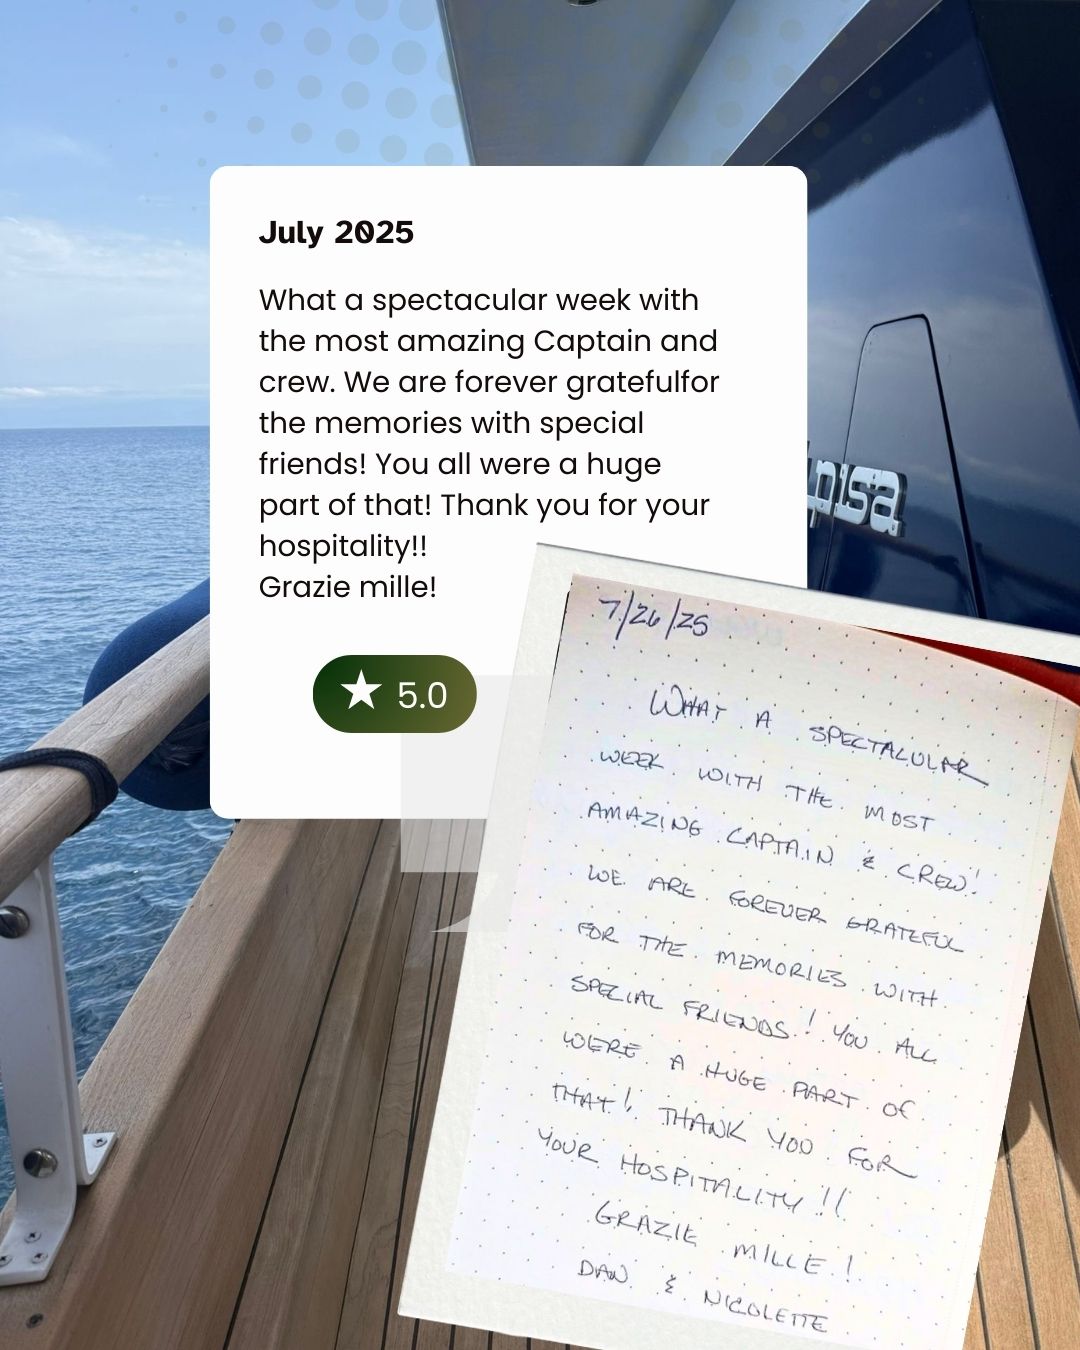 July 2025
What a spectacular week with
the most amazing Captain and
crew. We are forever gratefulfor
the memories with special
friends! You all were a huge
part of that! Thank you for your
hospitality!!
Grazie mille!
★ 5.0
pisa
7/26/25
WHAT A SPECTACULAR
WEEK WITH THE MOST
AMAZING CAPTAIN & CREW!
WE ARE FOREVER GRATEFUL
FOR THE MEMORIES WITH
SPECIAL FRIENDS! YOU ALL
WERE A HUGE PART OF
THAT! THANK YOU FOR
YOUR HOSPITALITY!!
GRAZIE MILLE!
DAN & NICOLETTE